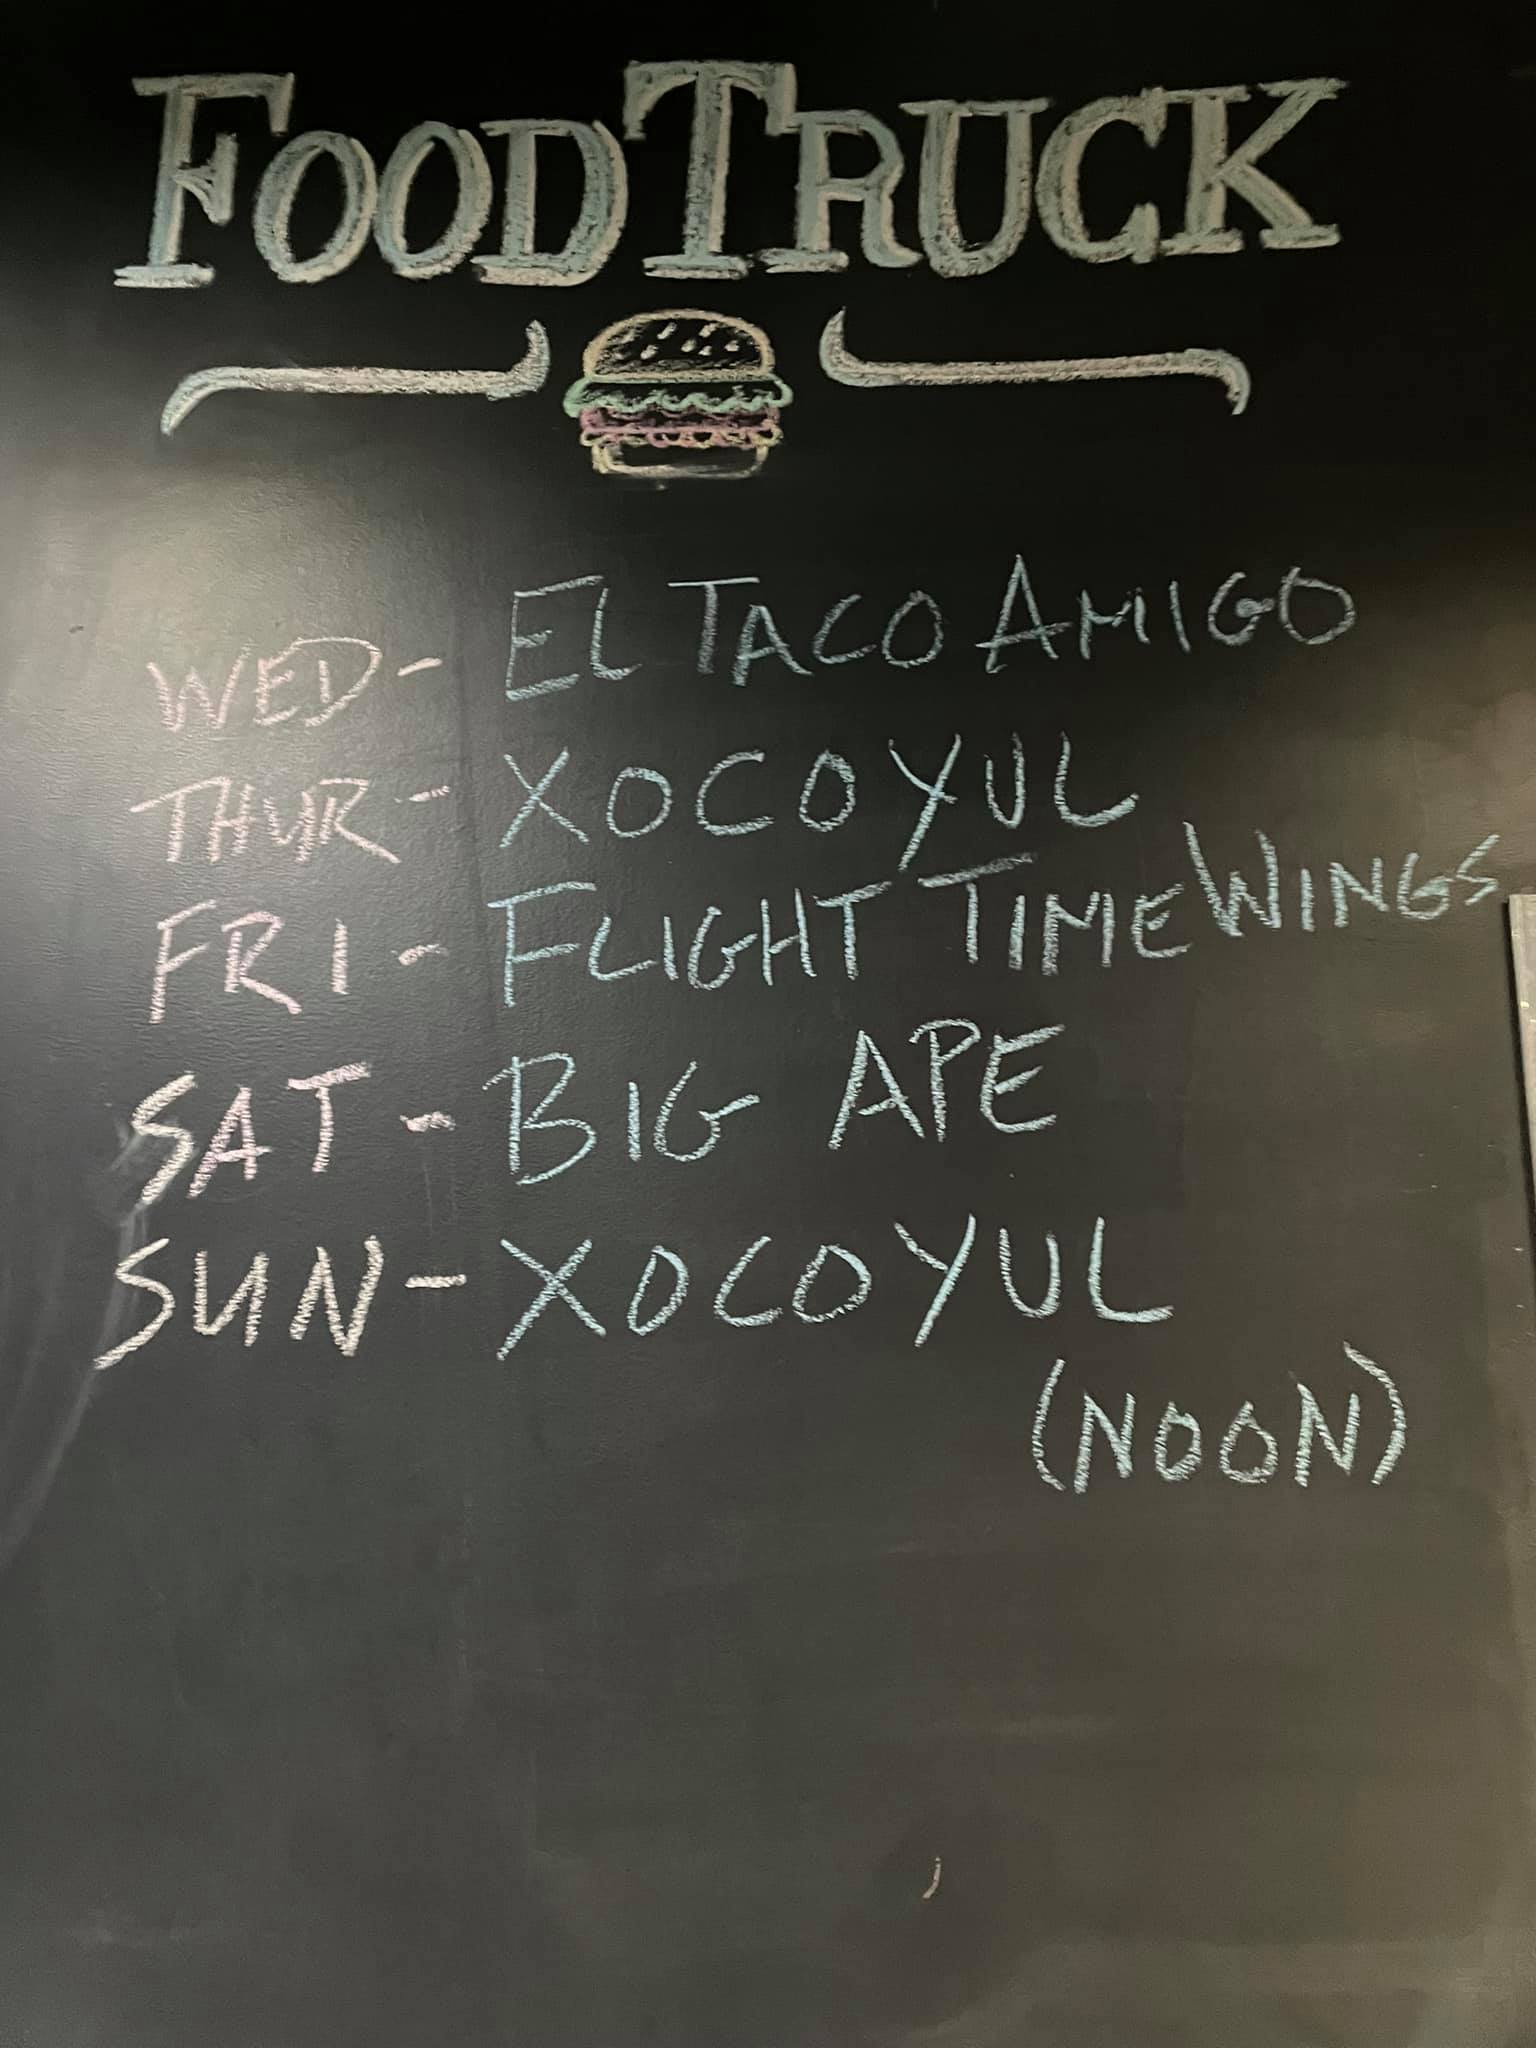 FOOD TRUCK
WED- EL TACO AMIGO
THUR- XOCOYUL
FRI- FLIGHT TIME WINGS
SAT- BIG APE
SUN- XOCOYUL
(NOON)